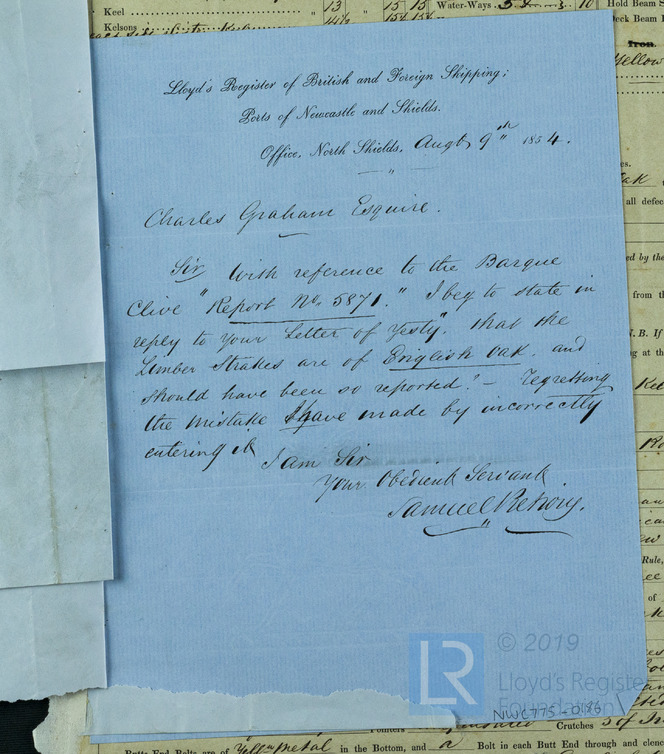 Keel 13 15 15 Water-Ways 10 Hold Beam
Kelsons 15½ 15½ Deck Beam
Iron.
Yellow
Lloyd's Register of British and Foreign Shipping;
Ports of Newcastle and Shields.
Office, North Shields, Augt 9th 1854.
Charles Graham Esquire.
Sir With reference to the Barque
Clive "Report No. 5871." I beg to state in
reply to your Letter of Yesty. that the
Limber Strakes are of English Oak. and
should have been so reported. – Regretting
the mistake I have made by incorrectly
entering it
I am Sir
Your Obedient Servant
Samuel
all defec
ed by the
from th
N.B. If
g at the
Kee
Rule,
of
LR © 2019
Lloyd's Register
Foundation
NWC775-0186
Crutches
Butts End Bolts are of Yellow metal in the Bottom, and a Bolt in each Butt End through and clen